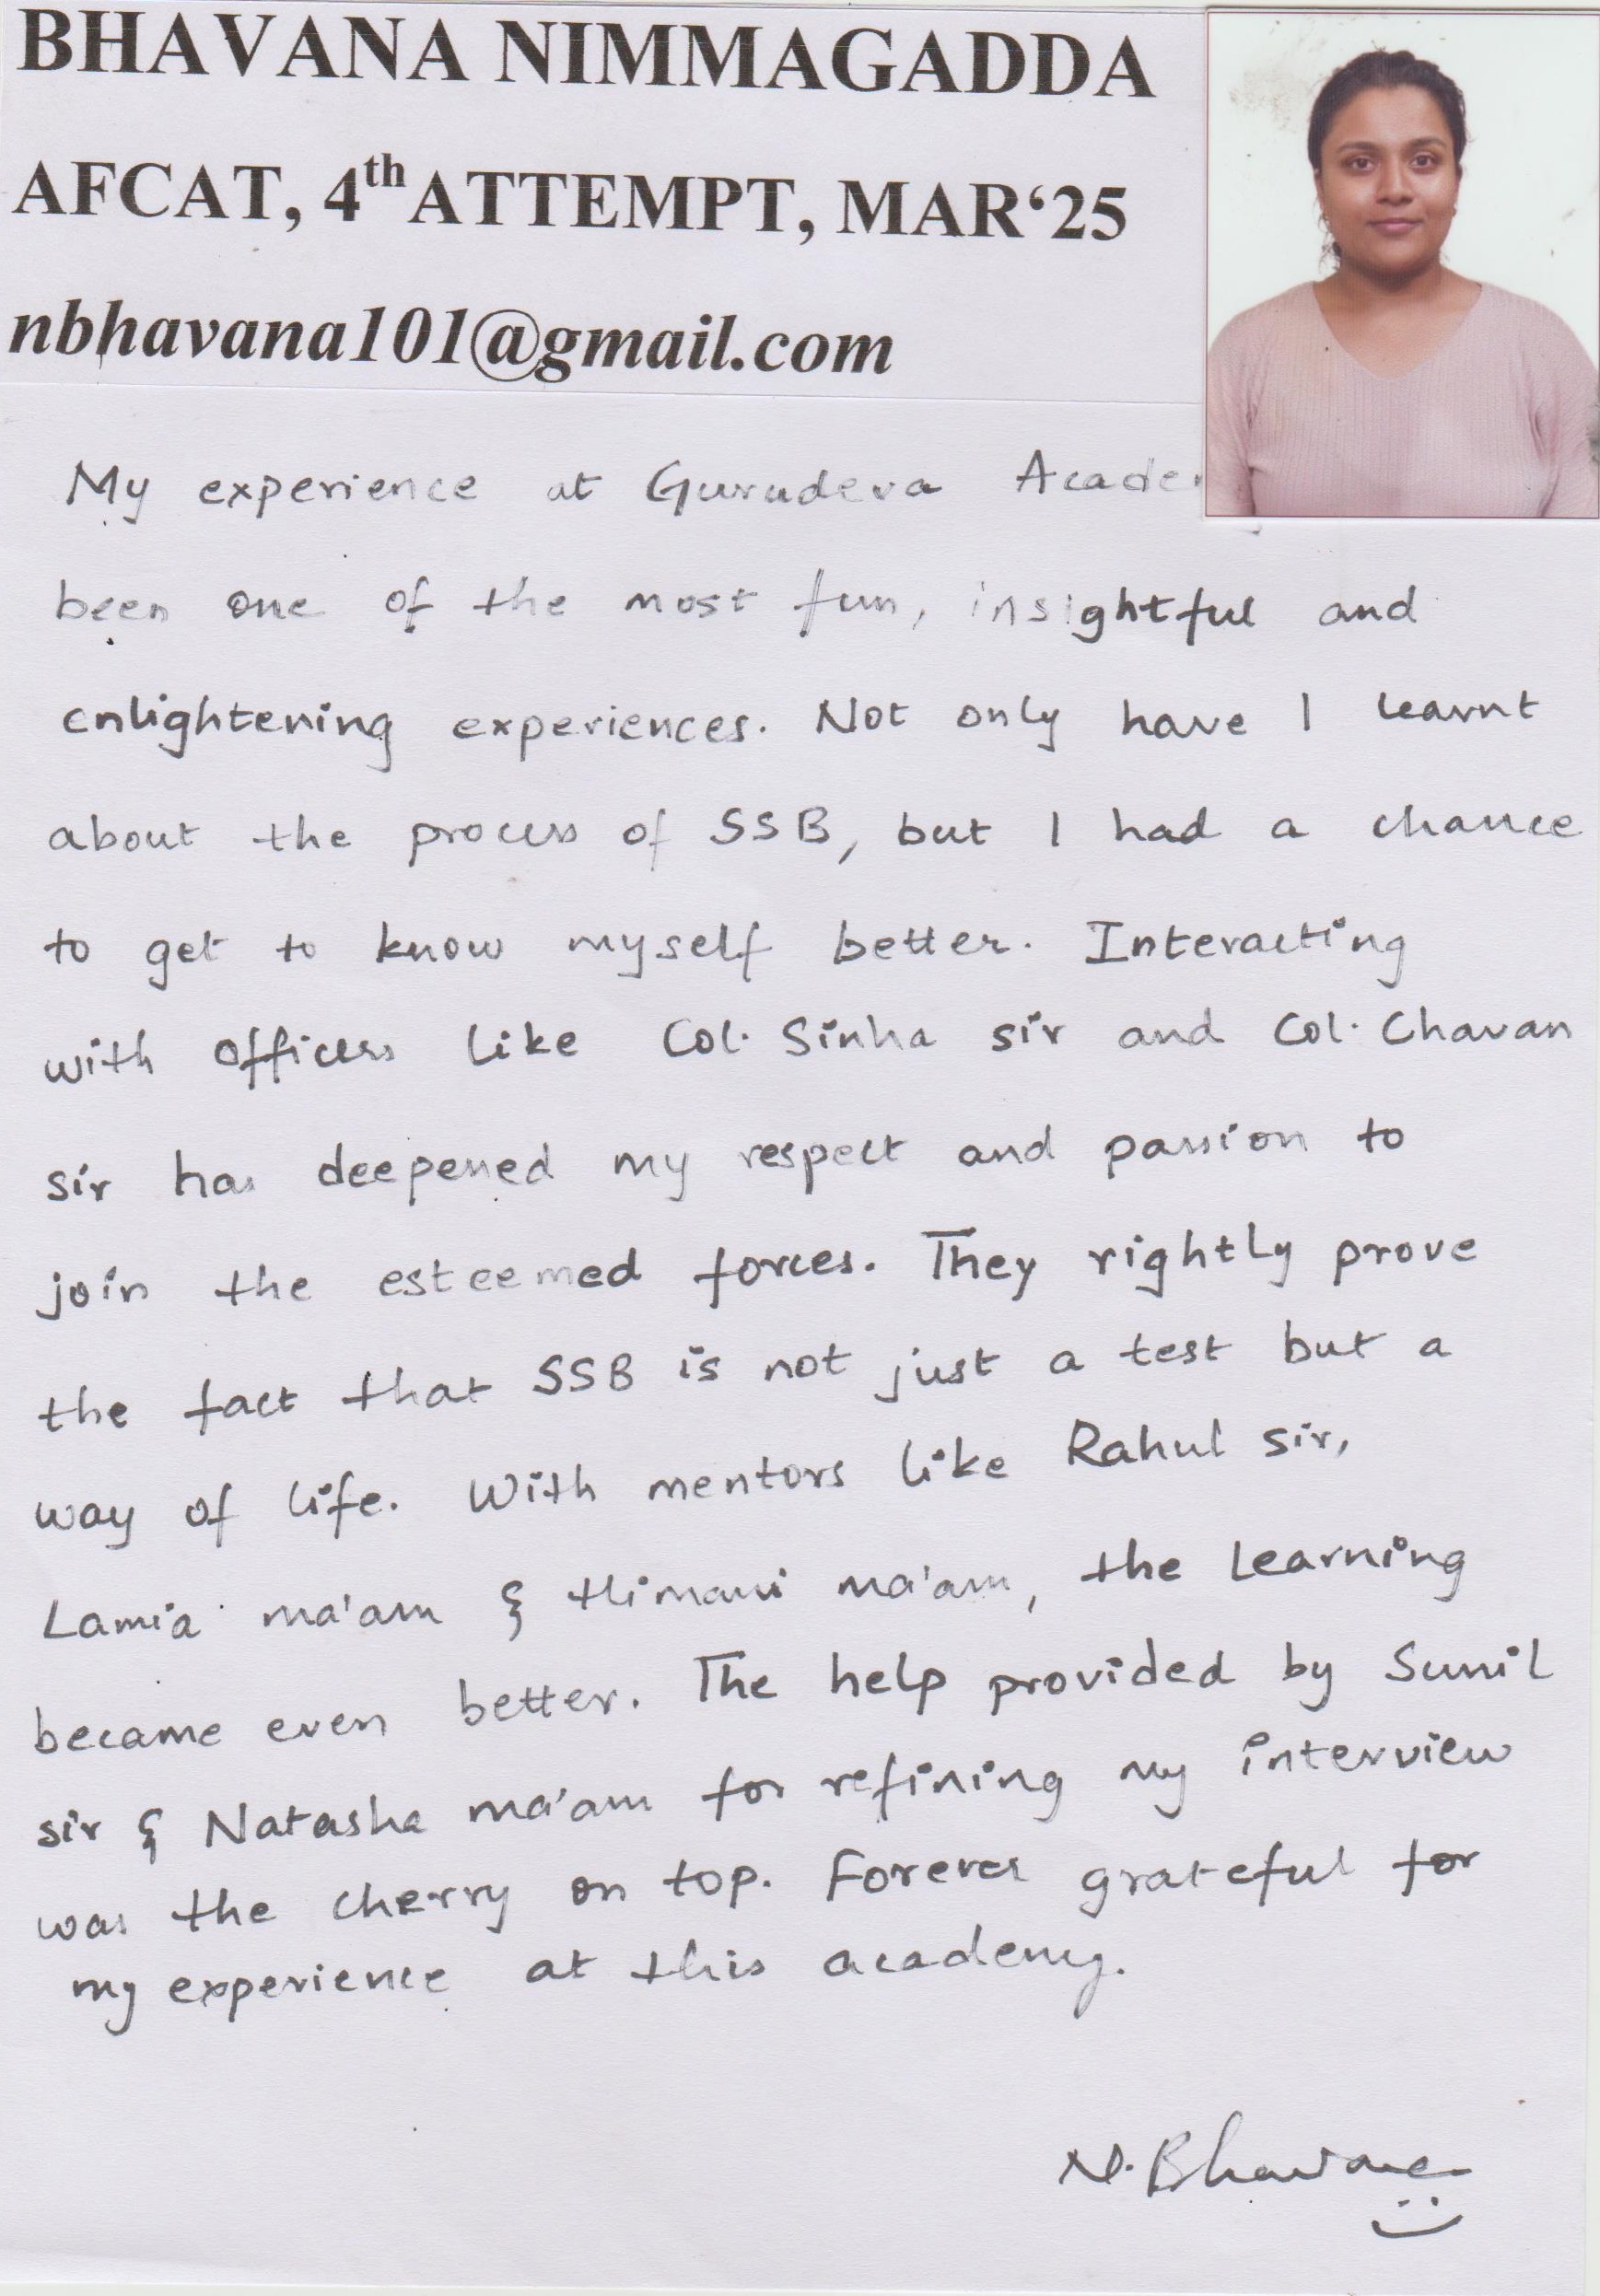 BHAVANA NIMMAGADDA
AFCAT, 4th ATTEMPT, MAR‘25
nbhavana101@gmail.com
My experience at Gurudeva
been one of the most fun, insightful and
enlightening experiences. Not only have I learnt
about the process of SSB, but I had a chance
to get to know myself better. Interacting
with officers like Col. Sinha sir and Col. Chavan
sir has deepened my respect and passion to
join the esteemed forces. They rightly prove
the fact that SSB is not just a test but a
way of life. With mentors like Rahul sir,
Lamia ma'am & Himani ma'am, the learning
became even better. The help provided by Sunil
sir & Natasha ma'am for refining my interview
was the cherry on top. Forever grateful for
my experience at this academy.
N. Bhavana